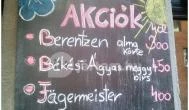 AKCIÓK
Berentzen alma körte 300
Békési Ágyas meggy birs 450
Jägermeister 400